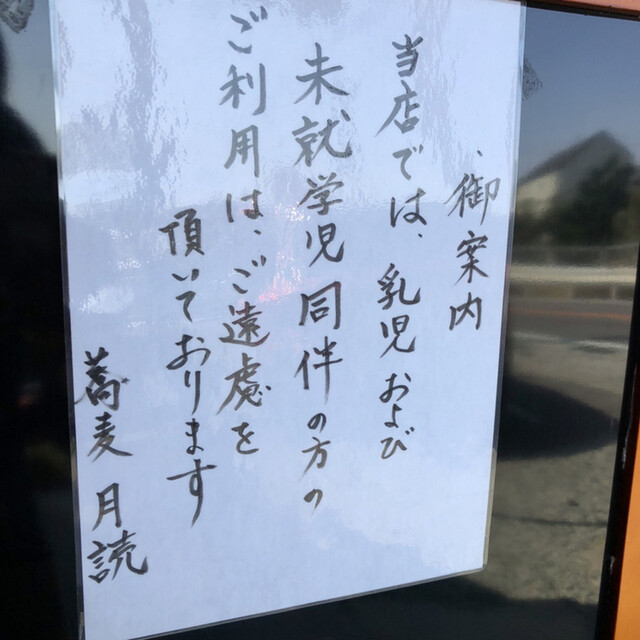 御案内
当店では、乳児および
未就学児同伴の方の
ご利用は、ご遠慮を
頂いております
蕎麦 月読